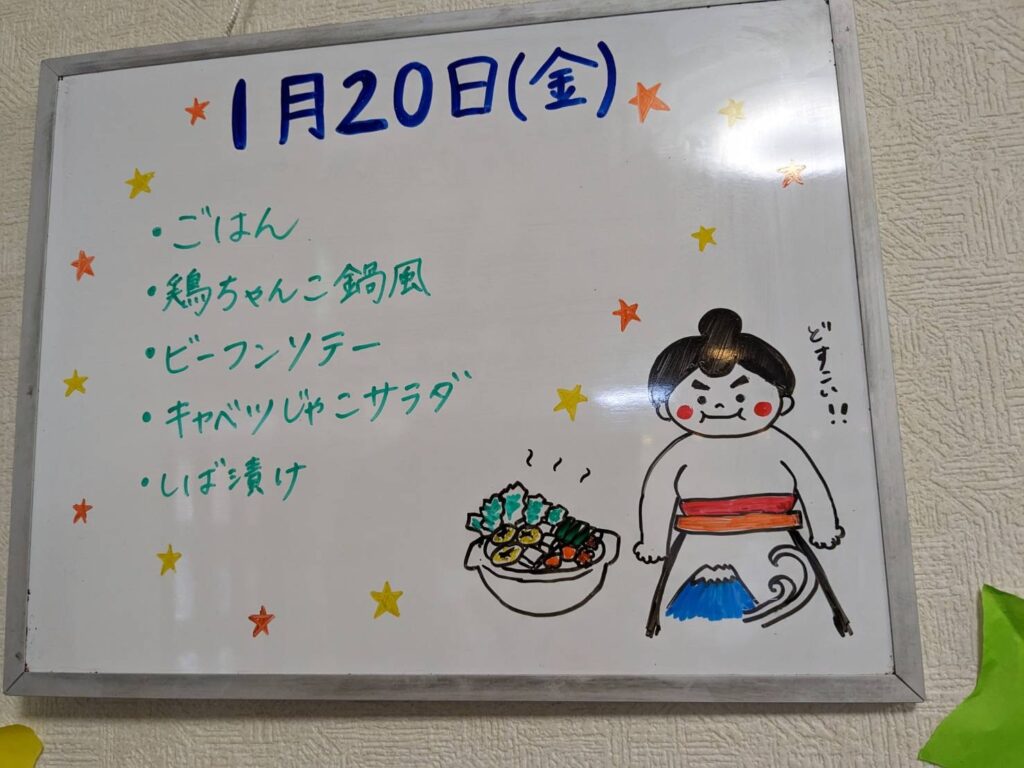 1月20日(金)
・ごはん
・鶏ちゃんこ鍋風
・ビーフンソテー
・キャベツじゃこサラダ
・しば漬け
どすこい!!